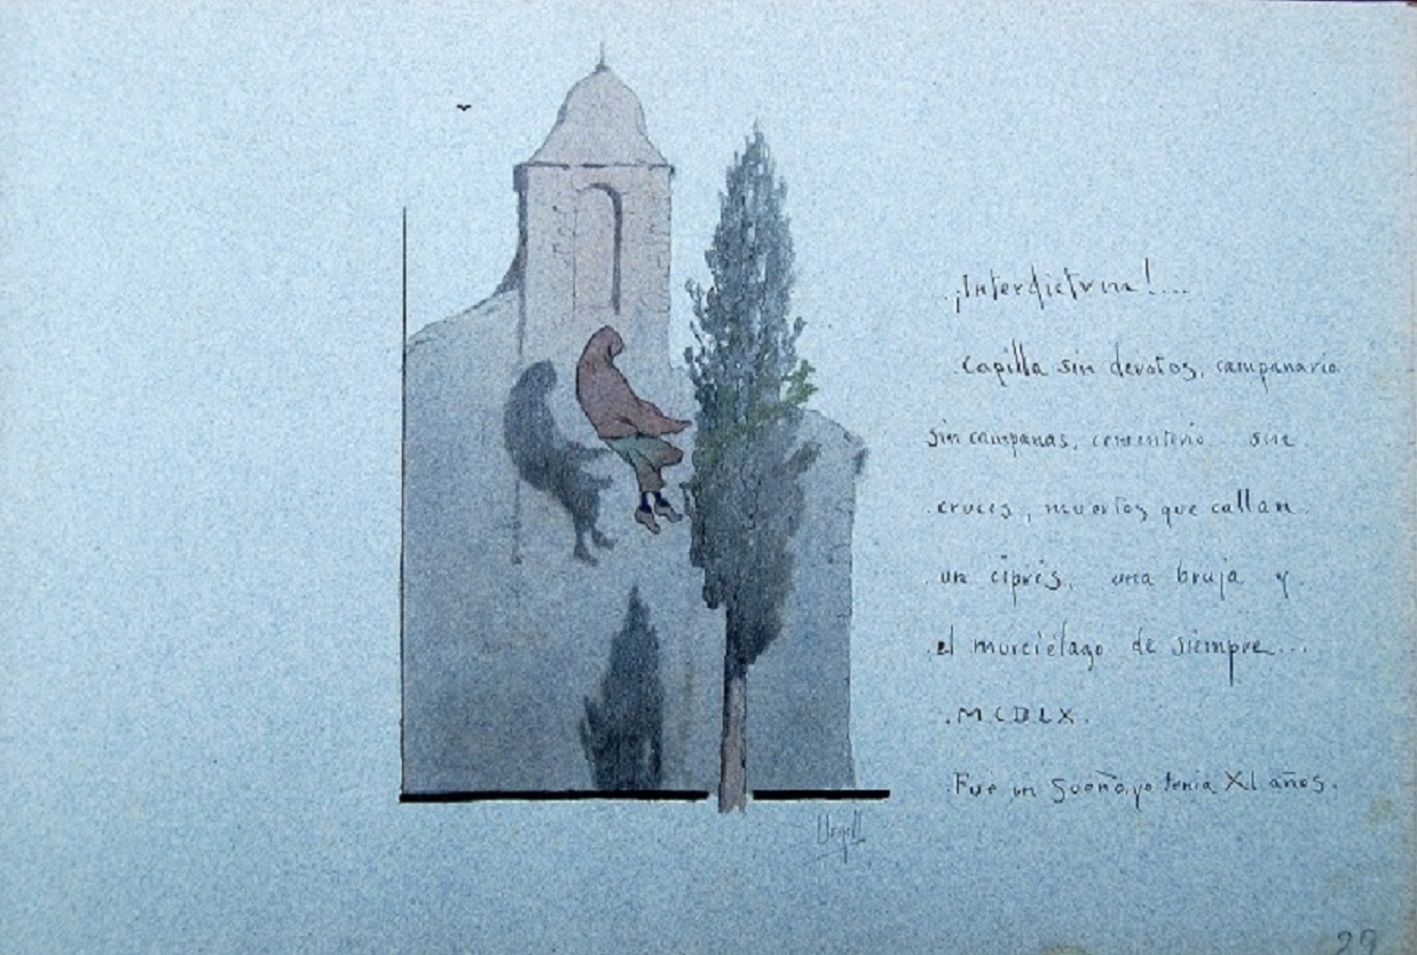 ¡Interdictum!...
Capilla sin devotos, campanario
sin campanas, cementerio sin
cruces, muertos que callan
un ciprés, una bruja y
el murciélago de siempre...
MCDLX.
Fué un sueño, yo tenia XII años.
Urgell
29